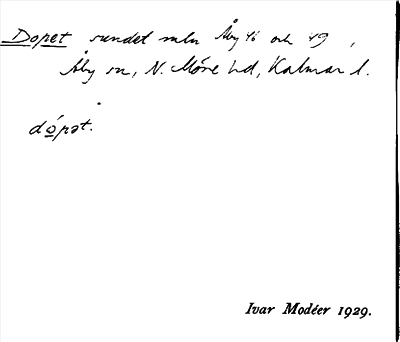 Dopet sundet mln Åby 46 och 49,
Åby sn, N. Möre hd, Kalmar l.
dópət.
Ivar Modéer 1929.